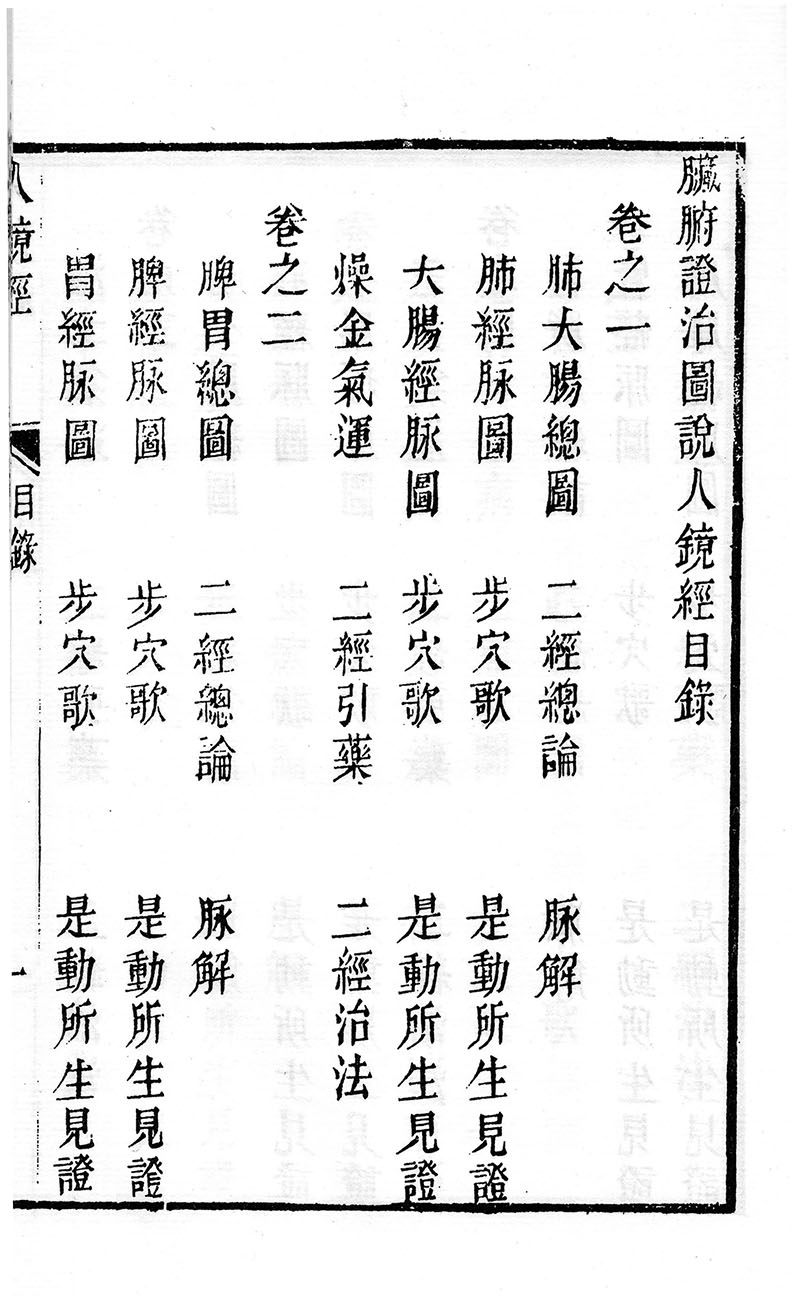 臟腑證治圖說人鏡經目錄
卷之一
肺大腸總圖 二經總論 脉解
肺經脉圖 步穴歌 是動所生見證
大腸經脉圖 步穴歌 是動所生見證
燥金氣運 二經引藥 二經治法
卷之二
脾胃總圖 二經總論 脉解
脾經脉圖 步穴歌 是動所生見證
胃經脉圖 步穴歌 是動所生見證
人鏡經 目錄 一